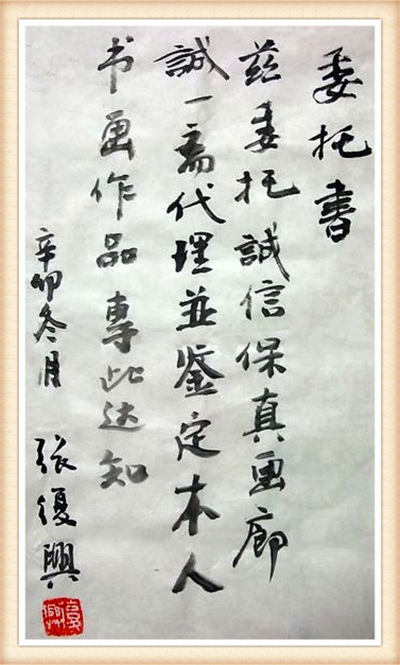 委托書
兹委托誠信保真画廊
誠一斋代理並鉴定本人
书画作品專此达知
辛卯冬月
張復興